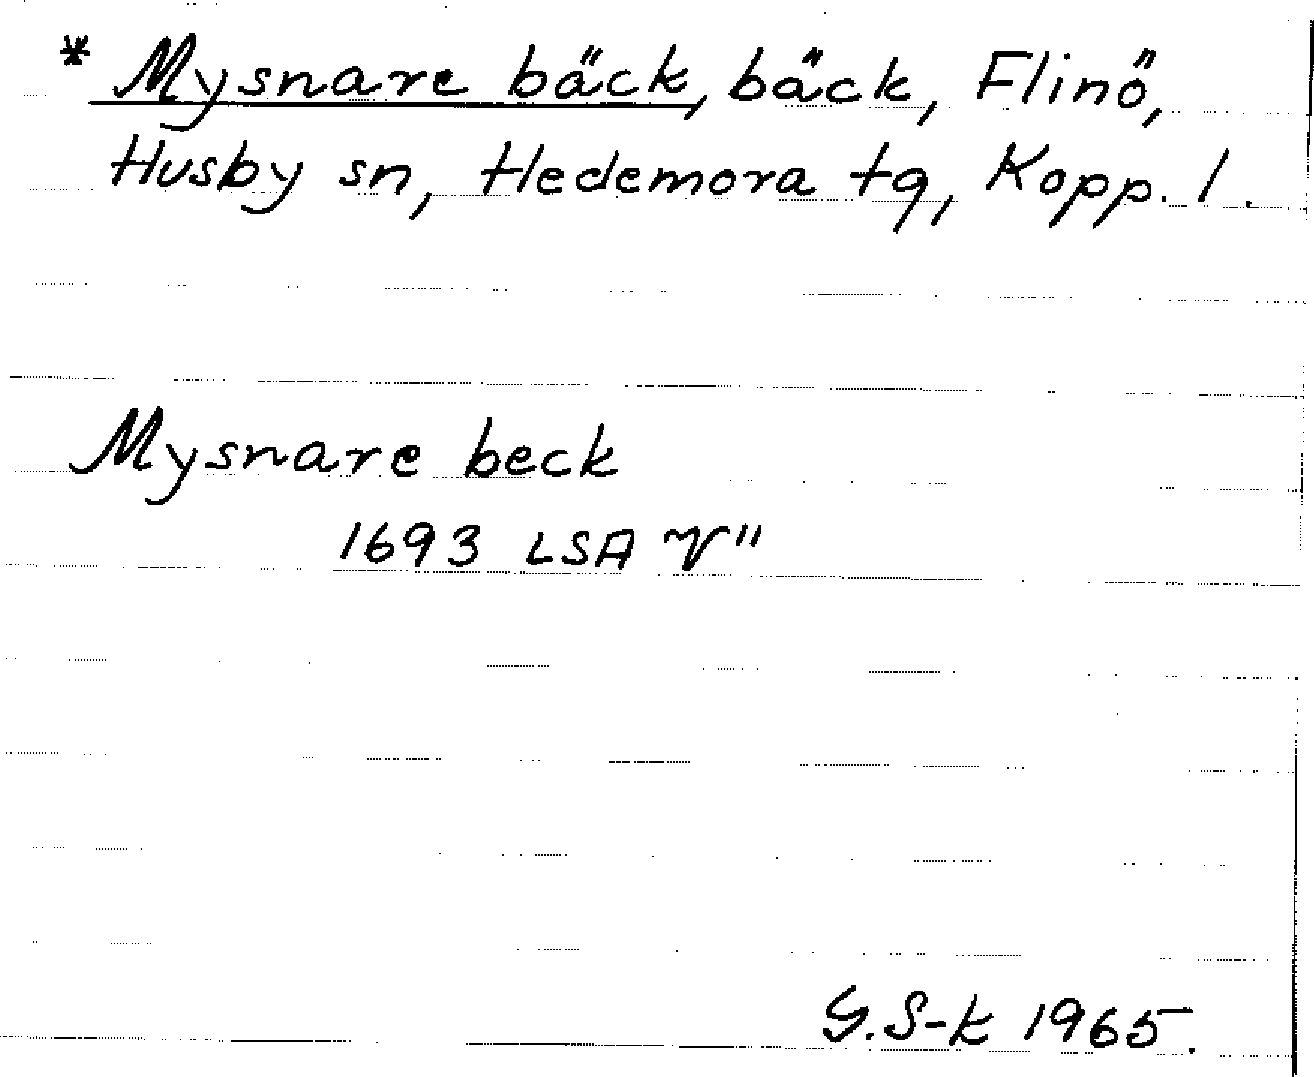 * Mysnare bäck, bäck, Flinö,
Husby sn, Hedemora tg, Kopp. l.
Mysnare beck
1693 LSA V"
G.S-k 1965.